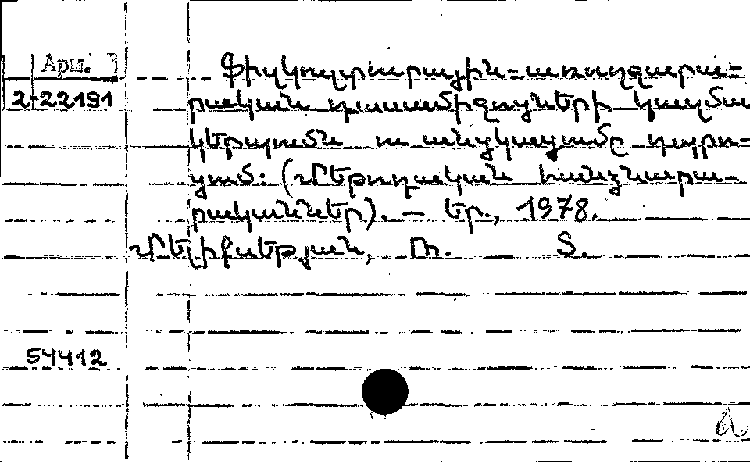 Арм.
2-22191
Ֆիզկուլտուրային-առողջարա-
րական դասամիջոցների կազմա
կերպումն ու անցկացումը դպրո-
ցում: (Մեթոդական հանձնարա-
րականներ). — Եր., 1978.
Մելիքսեթյան, Ռ. Տ.
54412